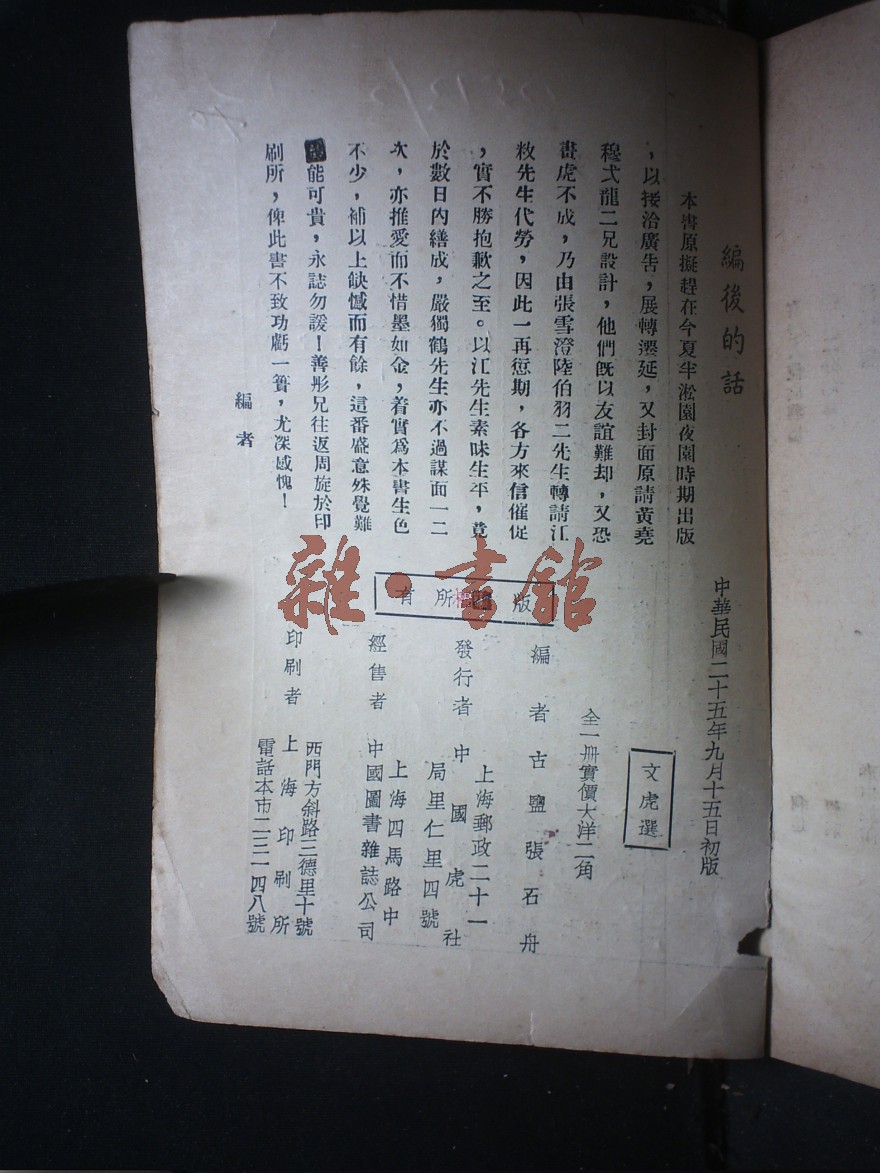 編後的話
本書原擬趕在今夏半淞園夜園時期出版
，以接洽廣告，展轉遷延，又封面原請黃堯
穆弌龍二兄設計，他們旣以友誼難却，又恐
畫虎不成，乃由張雪澄陸伯羽二先生轉請江
敉先生代勞，因此一再愆期，各方來信催促
，實不勝抱歉之至。以江先生素味生平，竟
於數日內繕成，嚴獨鶴先生亦不過謀面一二
次，亦推愛而不惜墨如金，着實爲本書生色
不少，補以上缺憾而有餘，這番盛意殊覺難
能可貴，永誌勿諼！善彤兄往返周旋於印
刷所，俾此書不致功虧一簣，尤深感愧！
編者
中華民國二十五年九月十五日初版
文虎選
全一冊實價大洋二角
版權所有
編者古鹽張石舟
發行者中國虎社
上海郵政二十一
局里仁里四號
經售者中國圖書雜誌公司
上海四馬路中
印刷者上海印刷所
西門方斜路三德里十號
電話本市二三一四八號
雜·書館